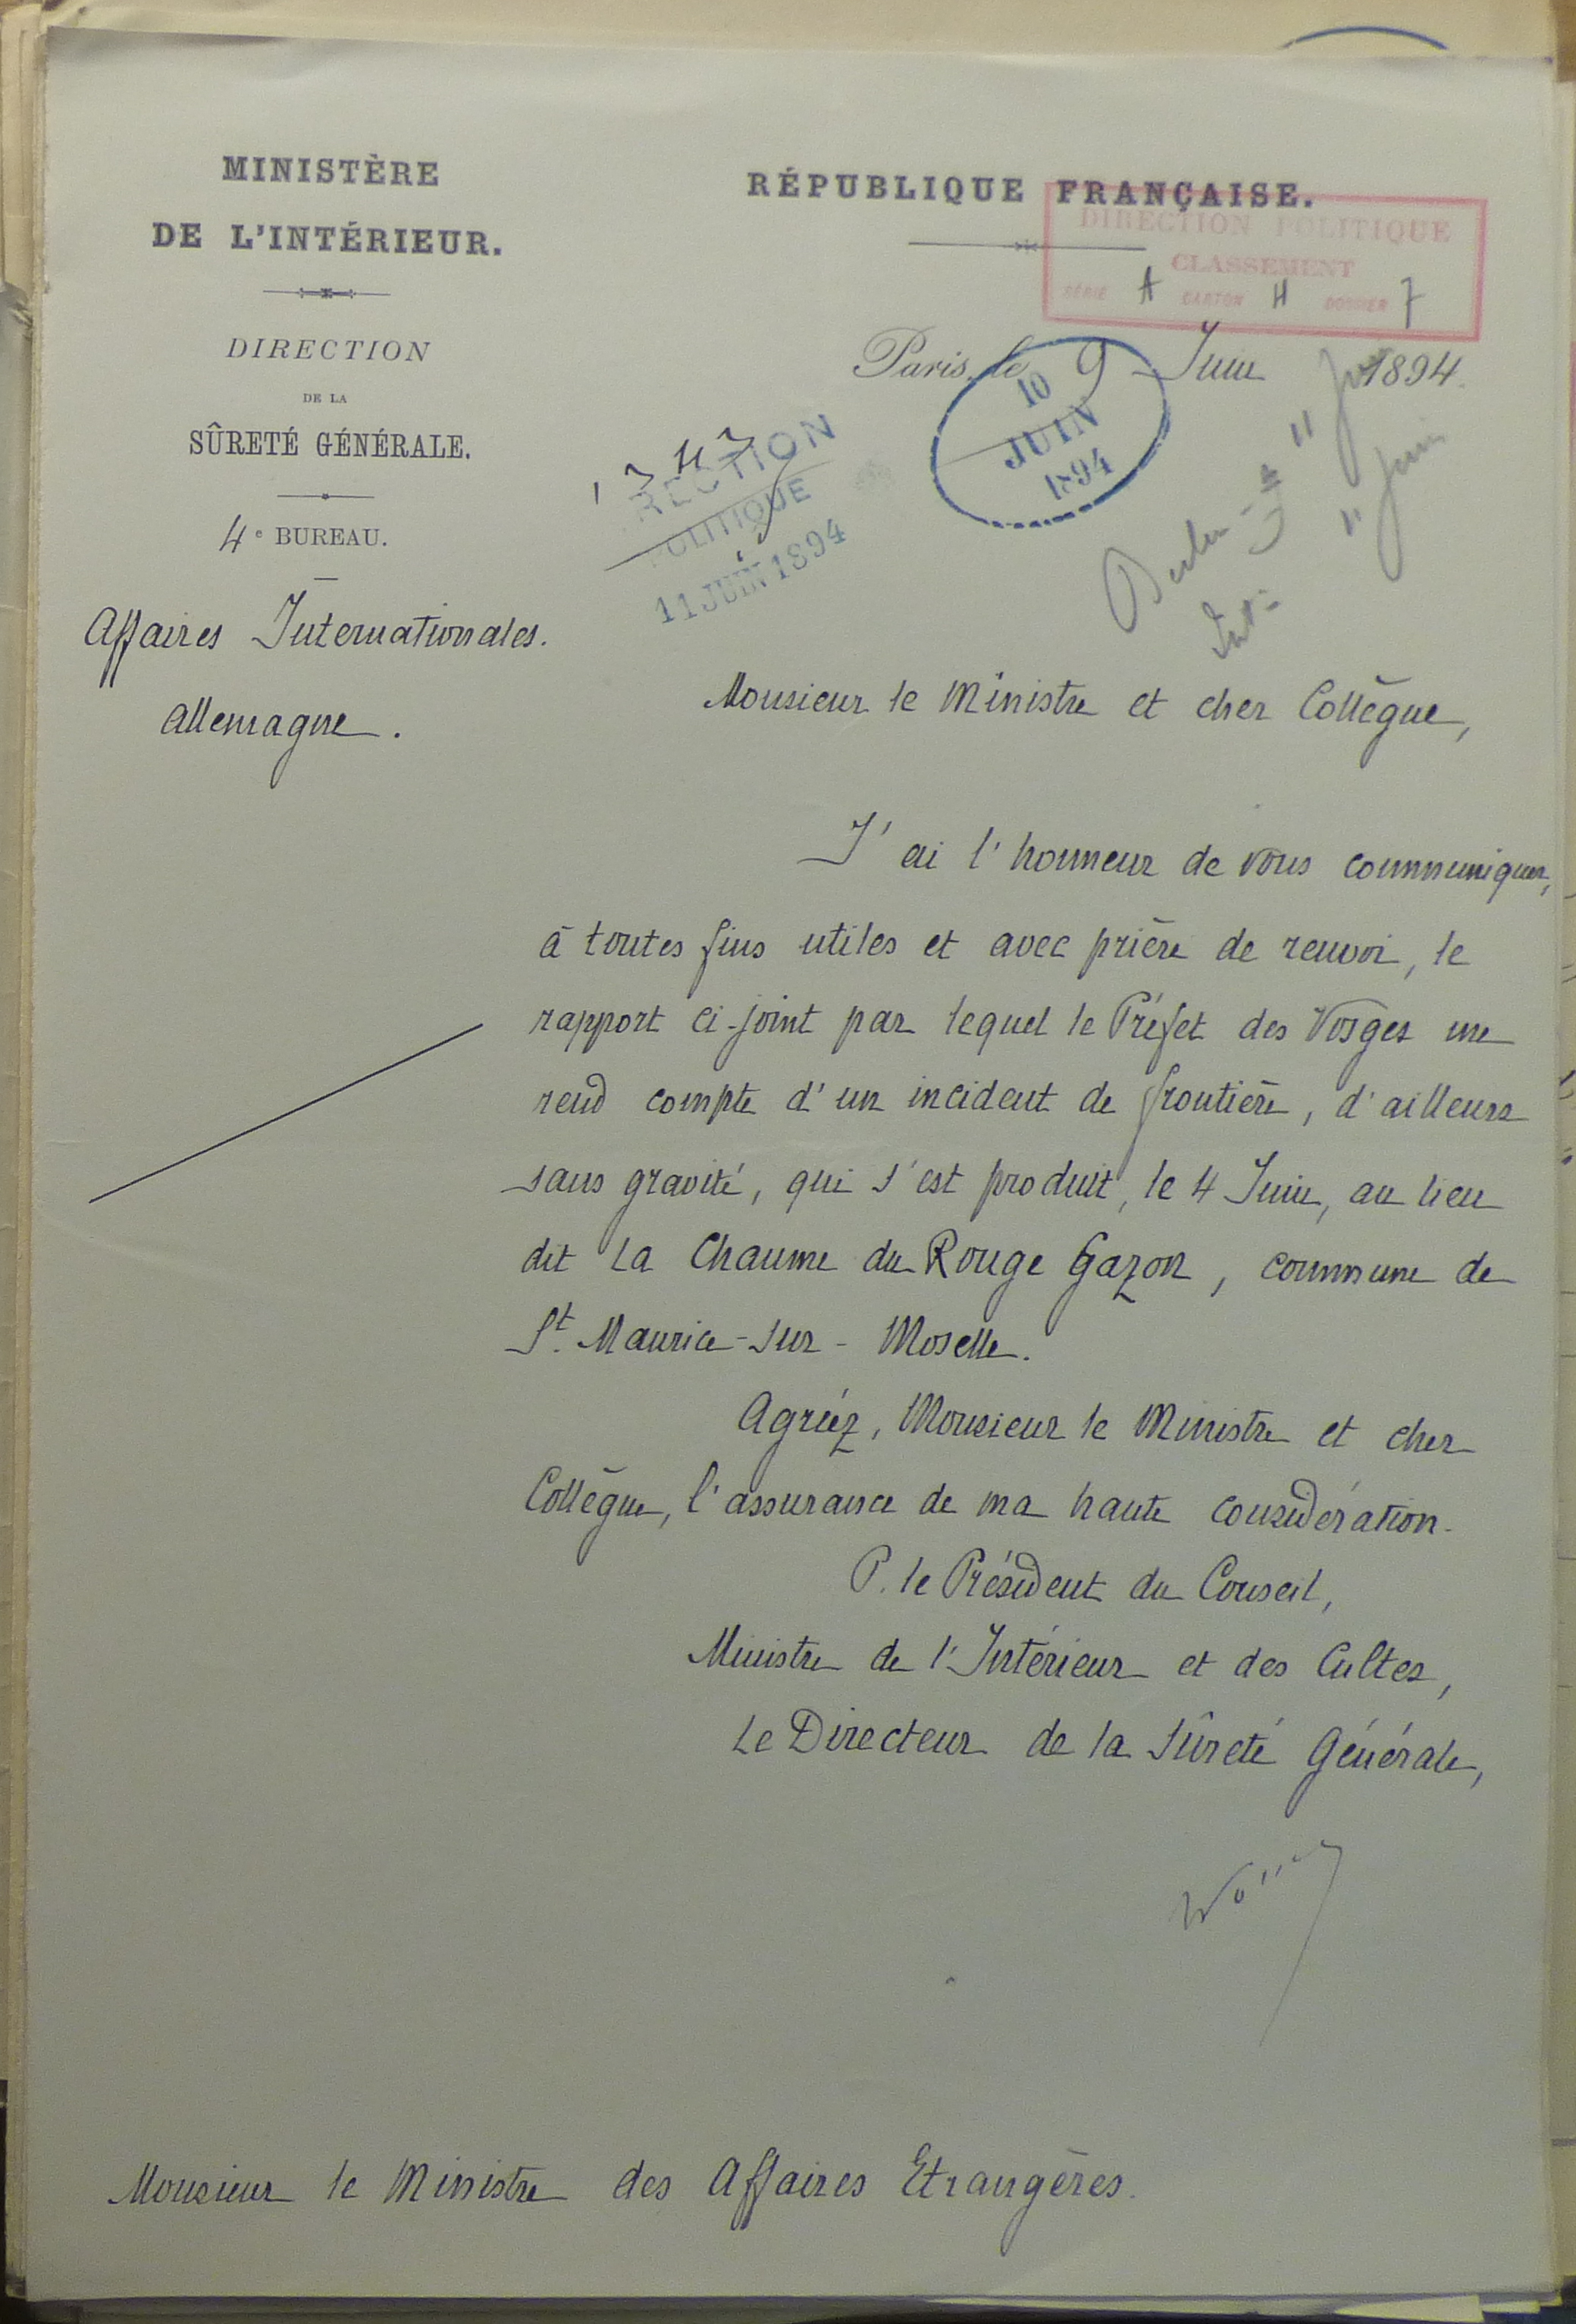 MINISTÈRE
DE L'INTÉRIEUR.
DIRECTION
DE LA
SÛRETÉ GÉNÉRALE.
4e BUREAU.
Affaires Internationales.
Allemagne.
RÉPUBLIQUE FRANÇAISE.
DIRECTION POLITIQUE
CLASSEMENT
SÉRIE A CARTON H DOSSIER 7
Paris, le 9 Juin 1894.
10
JUIN
1894
RECTION
POLITIQUE
11 JUIN 1894
Juin
" Juin
Monsieur le Ministre et cher Collègue,
J'ai l'honneur de vous communiquer,
à toutes fins utiles et avec prière de renvoi, le
rapport ci-joint par lequel le Préfet des Vosges me
rend compte d'un incident de frontière, d'ailleurs
sans gravité, qui s'est produit, le 4 Juin, au lieu
dit La Chaume du Rouge Gazon, commune de
St. Maurice-sur-Moselle.
Agréez, Monsieur le Ministre et cher
Collègue, l'assurance de ma haute considération.
P. le Président du Conseil,
Ministre de l'Intérieur et des Cultes,
Le Directeur de la Sûreté Générale,
Monsieur le Ministre des Affaires Etrangères.